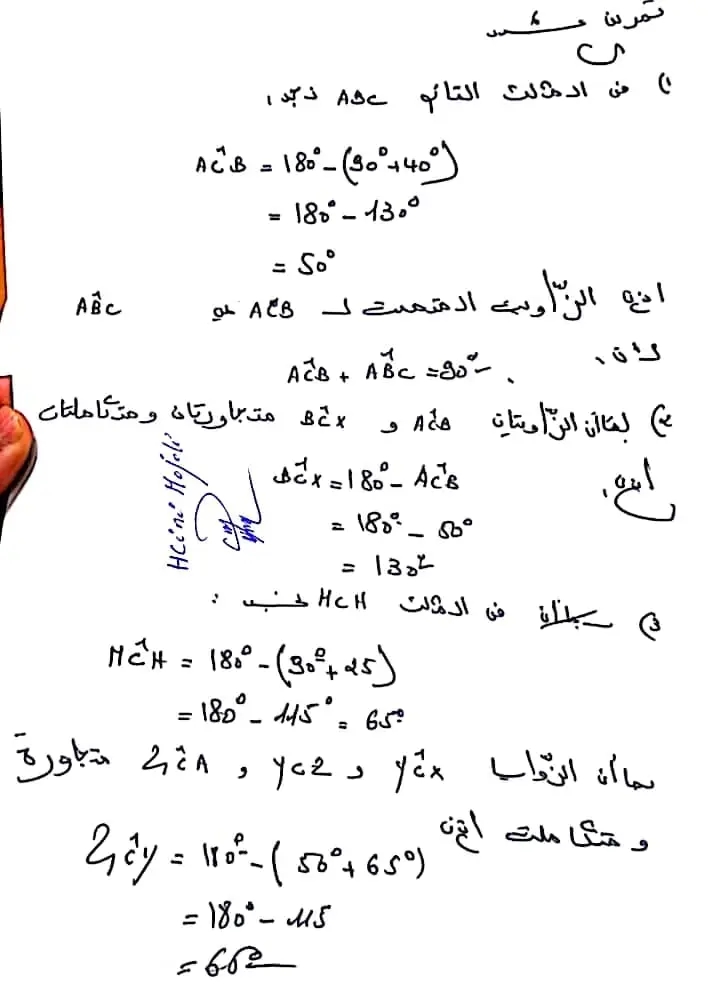 تمرين عدد
1) في المثلث القائم ABC نجد:
AĈB = 180° - (90° + 40°)
= 180° - 130°
= 50°
إذن الزّاوية المتممة لـ AĈB هو AB̂C
لأن
AĈB + AB̂C = 90°
2) بما أن الزّاويتان AĈB و BĈX متجاورتان ومتكاملتان
إذن
BĈX = 180° - AĈB
= 180° - 50°
= 130°
HCini Hojeli
3) في المثلث HCH :
MĈH = 180° - (90° + 25)
= 180° - 115° = 65°
بما أن الزّوايا yĈx و yCz و zĈA متجاورة
و متكاملة إذن
zĈy = 180° - (50° + 65°)
= 180° - 115